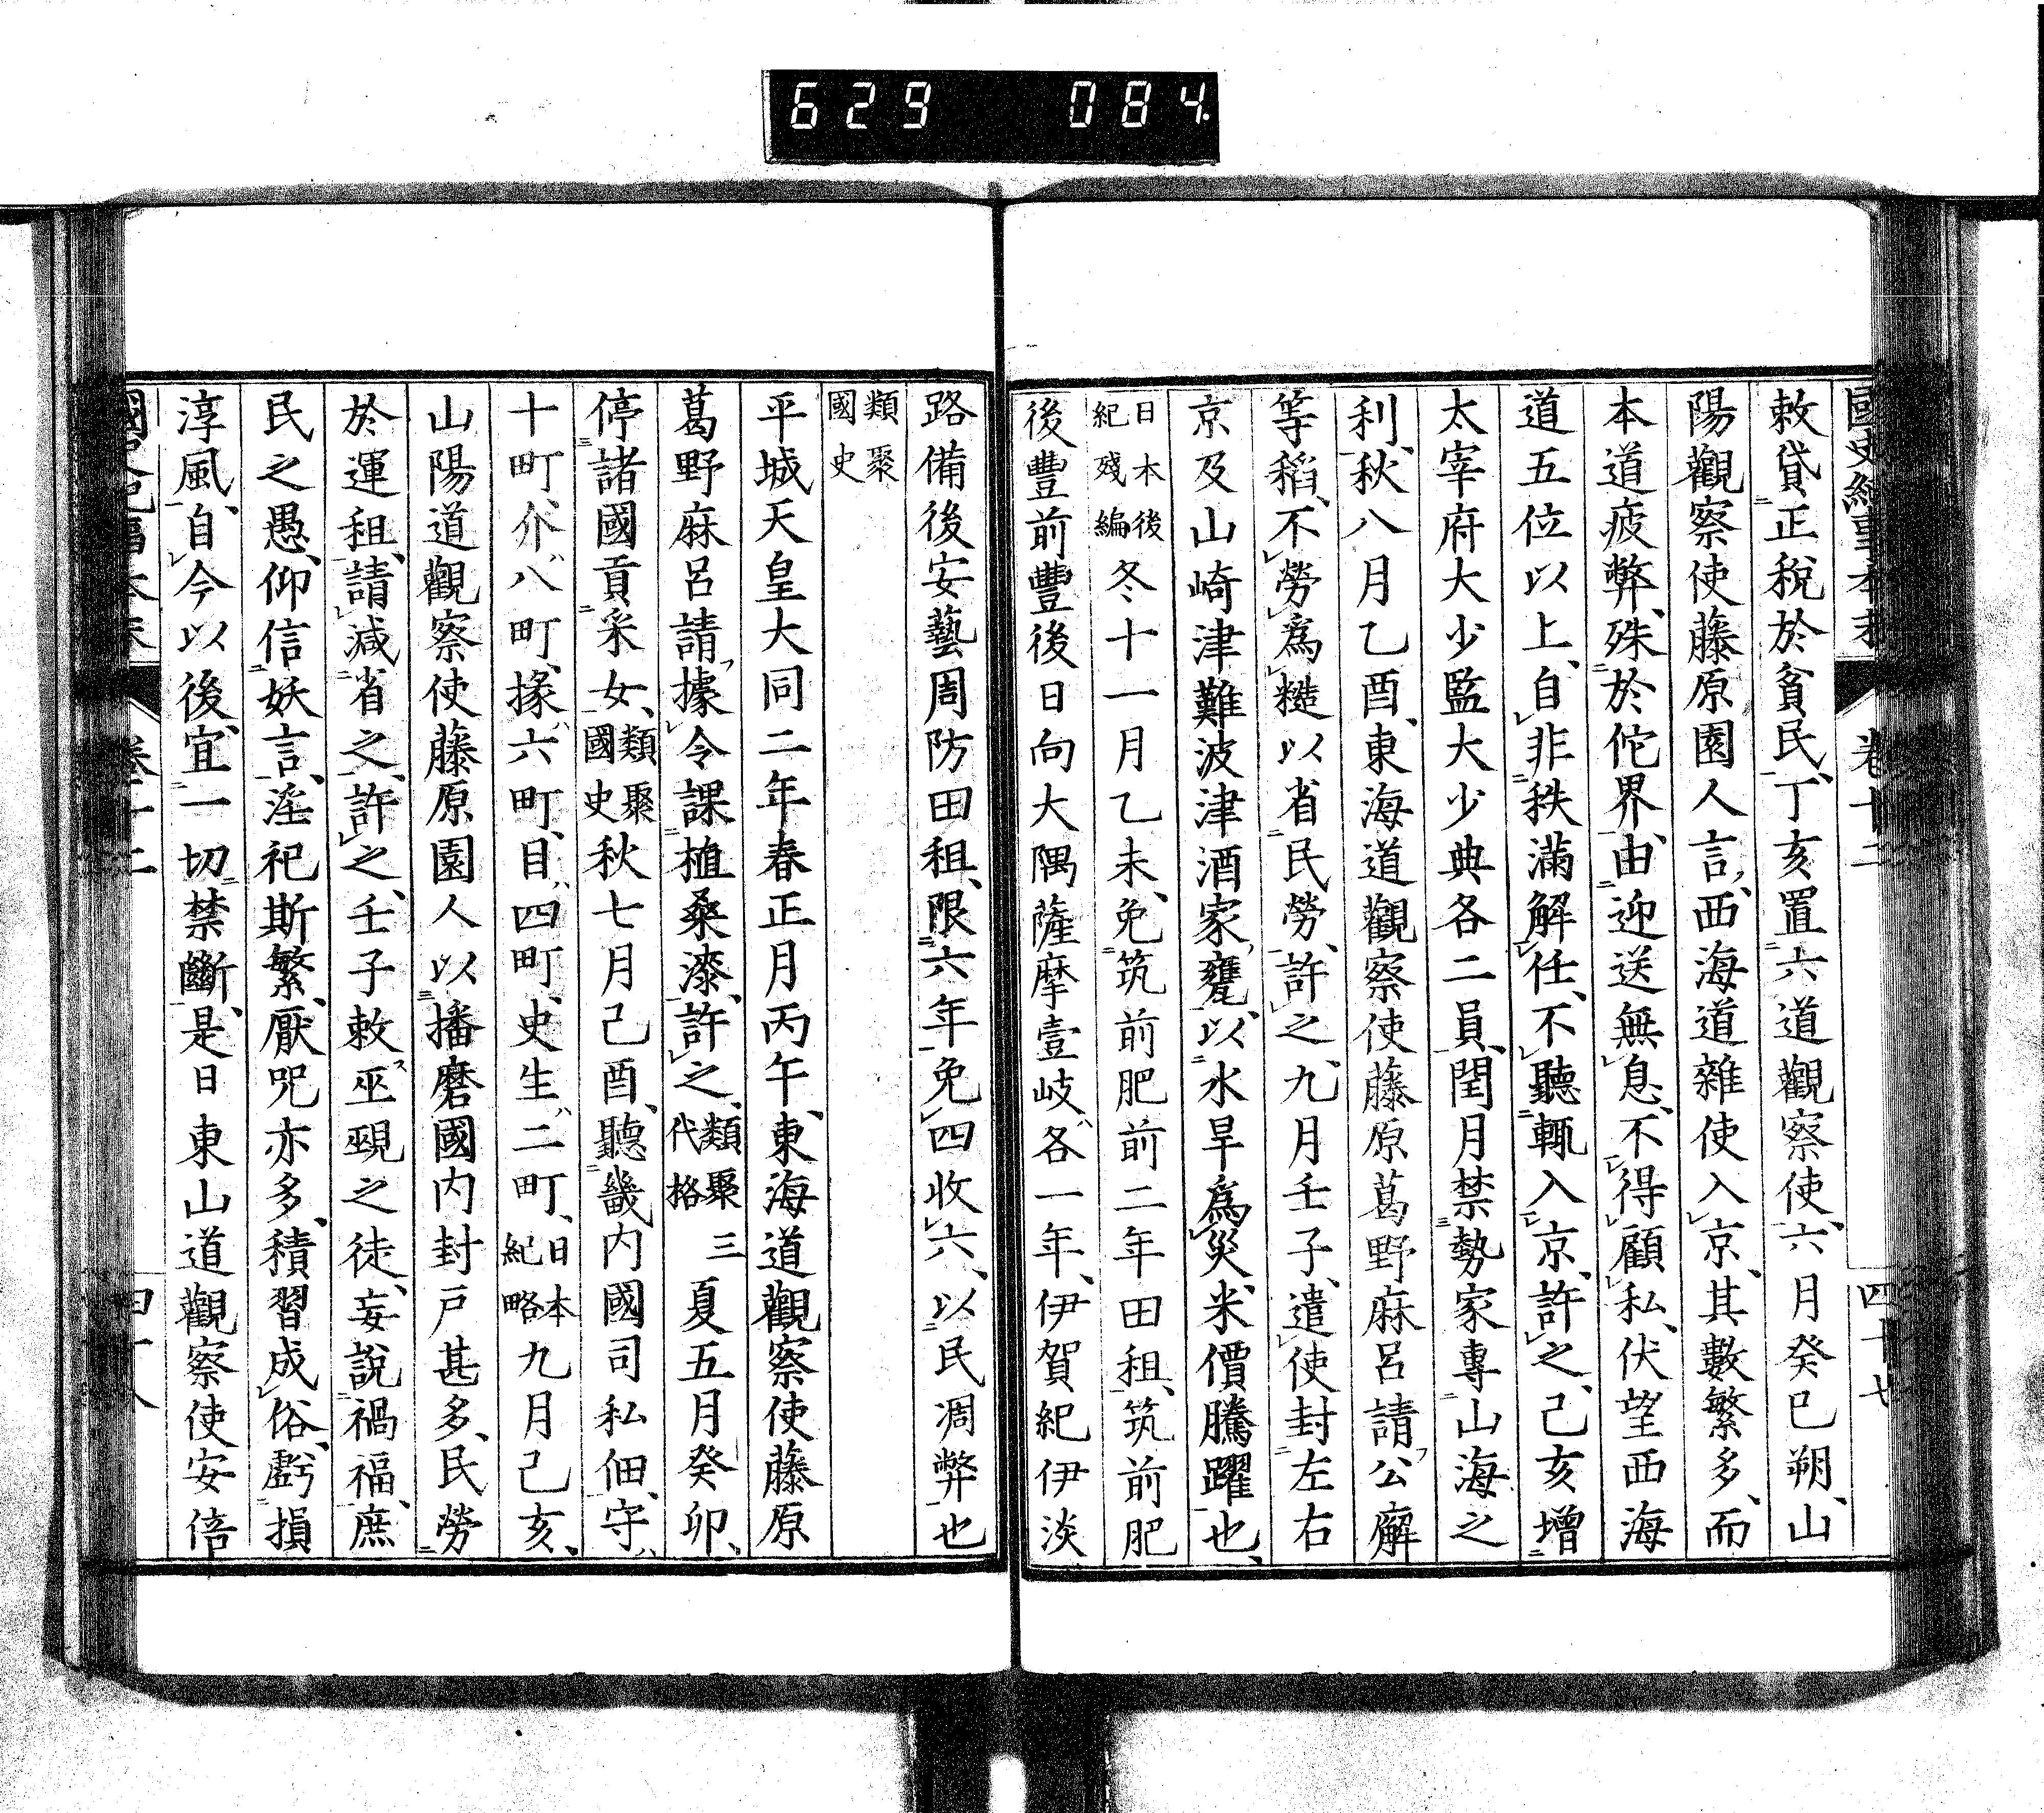 629 084
國史紀事本末 卷十二 四十七
敕貸正稅於貧民、丁亥置六道觀察使、六月癸巳朔、山
陽觀察使藤原園人言、西海道雜使入京、其數繁多、而
本道疲弊、殊於佗界、由迎送無息、不得顧私、伏望西海
道五位以上、自非秩滿解任、不聽輒入京、許之、己亥增
太宰府大少監大少典各二員、閏月禁勢家專山海之
利、秋八月乙酉、東海道觀察使藤原葛野麻呂請公廨
等稻、不勞爲糙以省民勞、許之、九月壬子、遣使封左右
京及山崎津難波津酒家甕、以水旱爲災、米價騰躍也、
日本後紀殘編冬十一月乙未、免筑前肥前二年田租、筑前肥
後豐前豐後日向大隅薩摩壹岐、各一年、伊賀紀伊淡
路備後安藝周防田租、限六年免四收六、以民凋弊也
類聚國史
平城天皇大同二年春正月丙午、東海道觀察使藤原
葛野麻呂請據令課植桑漆、許之、類聚三代格夏五月癸卯、
停諸國貢采女、類聚國史秋七月己酉、聽畿内國司私佃、守
十町、介八町、掾六町、目四町、史生二町、日本紀略九月己亥、
山陽道觀察使藤原園人以播磨國内封戸甚多、民勞
於運租、請減省之、許之、壬子敕巫覡之徒、妄說禍福、庶
民之愚、仰信妖言、淫祀斯繁、厭咒亦多、積習成俗、虧損
淳風、自今以後、宜一切禁斷、是日東山道觀察使安倍
卷十二 四十八